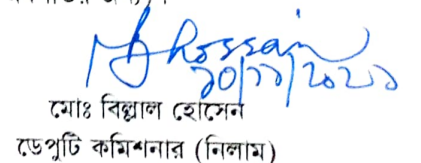 Hossain
১০/১১/২০২১
মোঃ বিল্লাল হোসেন
ডেপুটি কমিশনার (নিলাম)